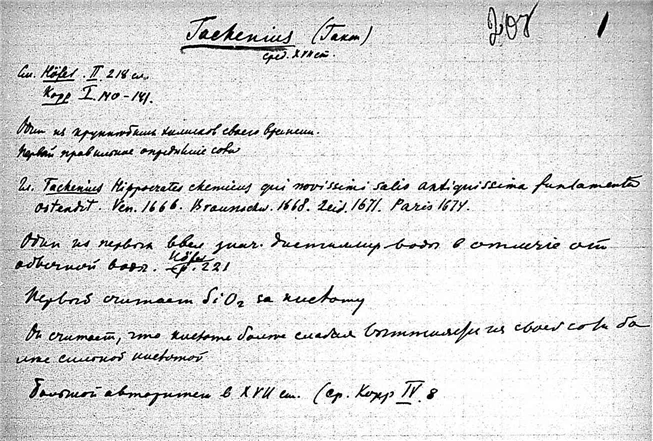 Tachenius (Тахен) 208 1
сред. XVII ст.
См. Höfer. II. 218 сл.
Kopp I. 140-141.
Один из крупнейших химиков своего времени.
Первый правильное определение соли
Из. Tachenius Hippocrates chemicus qui novissimi salis antiquissima fundamenta
ostendit. Ven. 1666. Braunschw. 1668. Leid. 1671. Paris 1674.
Один из первых ввел знач. дистиллир воды в отличие от
обычной воды. Höfer 221
Первый считает SiO2 за кислоту
Он считает, что кислоте более слабая вытесняется из своей соли бо
лее сильной кислотой
Большой авторитет в XVII ст. (ср. Kopp IV. 8